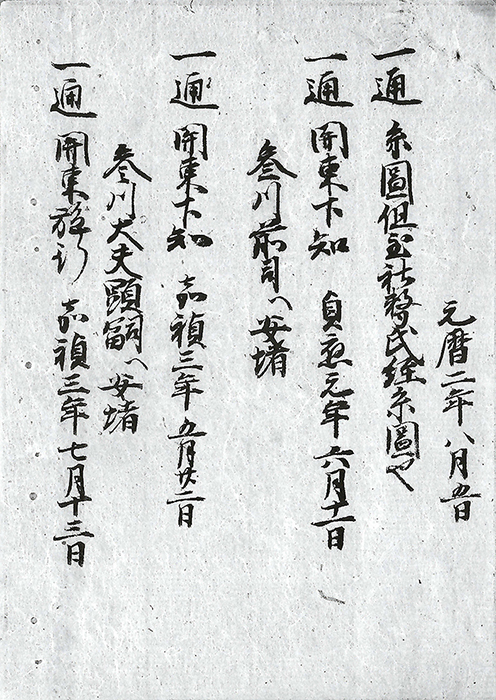 元暦二年八月五日
一通 系圖但至社務氏経系圖也
一通 関東下知 貞応元年六月十一日
参川前司へ安堵
一通 関東下知 嘉禎三年五月廿二日
参川大夫顕嗣へ安堵
一通 関東施行 嘉禎三年七月十三日